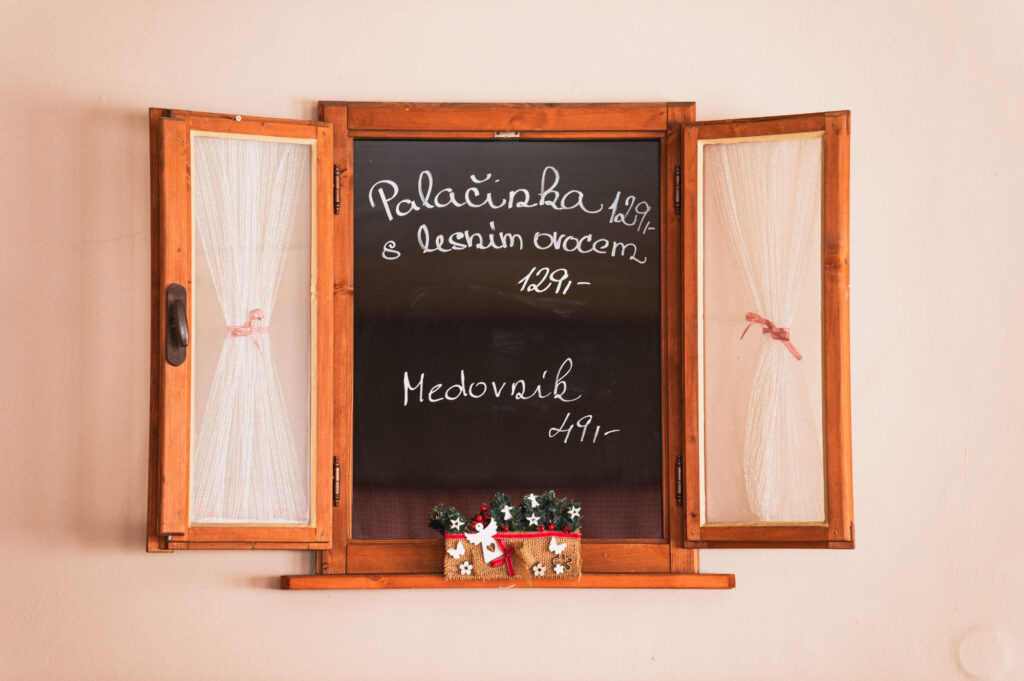 Palačinka 129,-
s lesním ovocem
129,-
Medovník
49,-